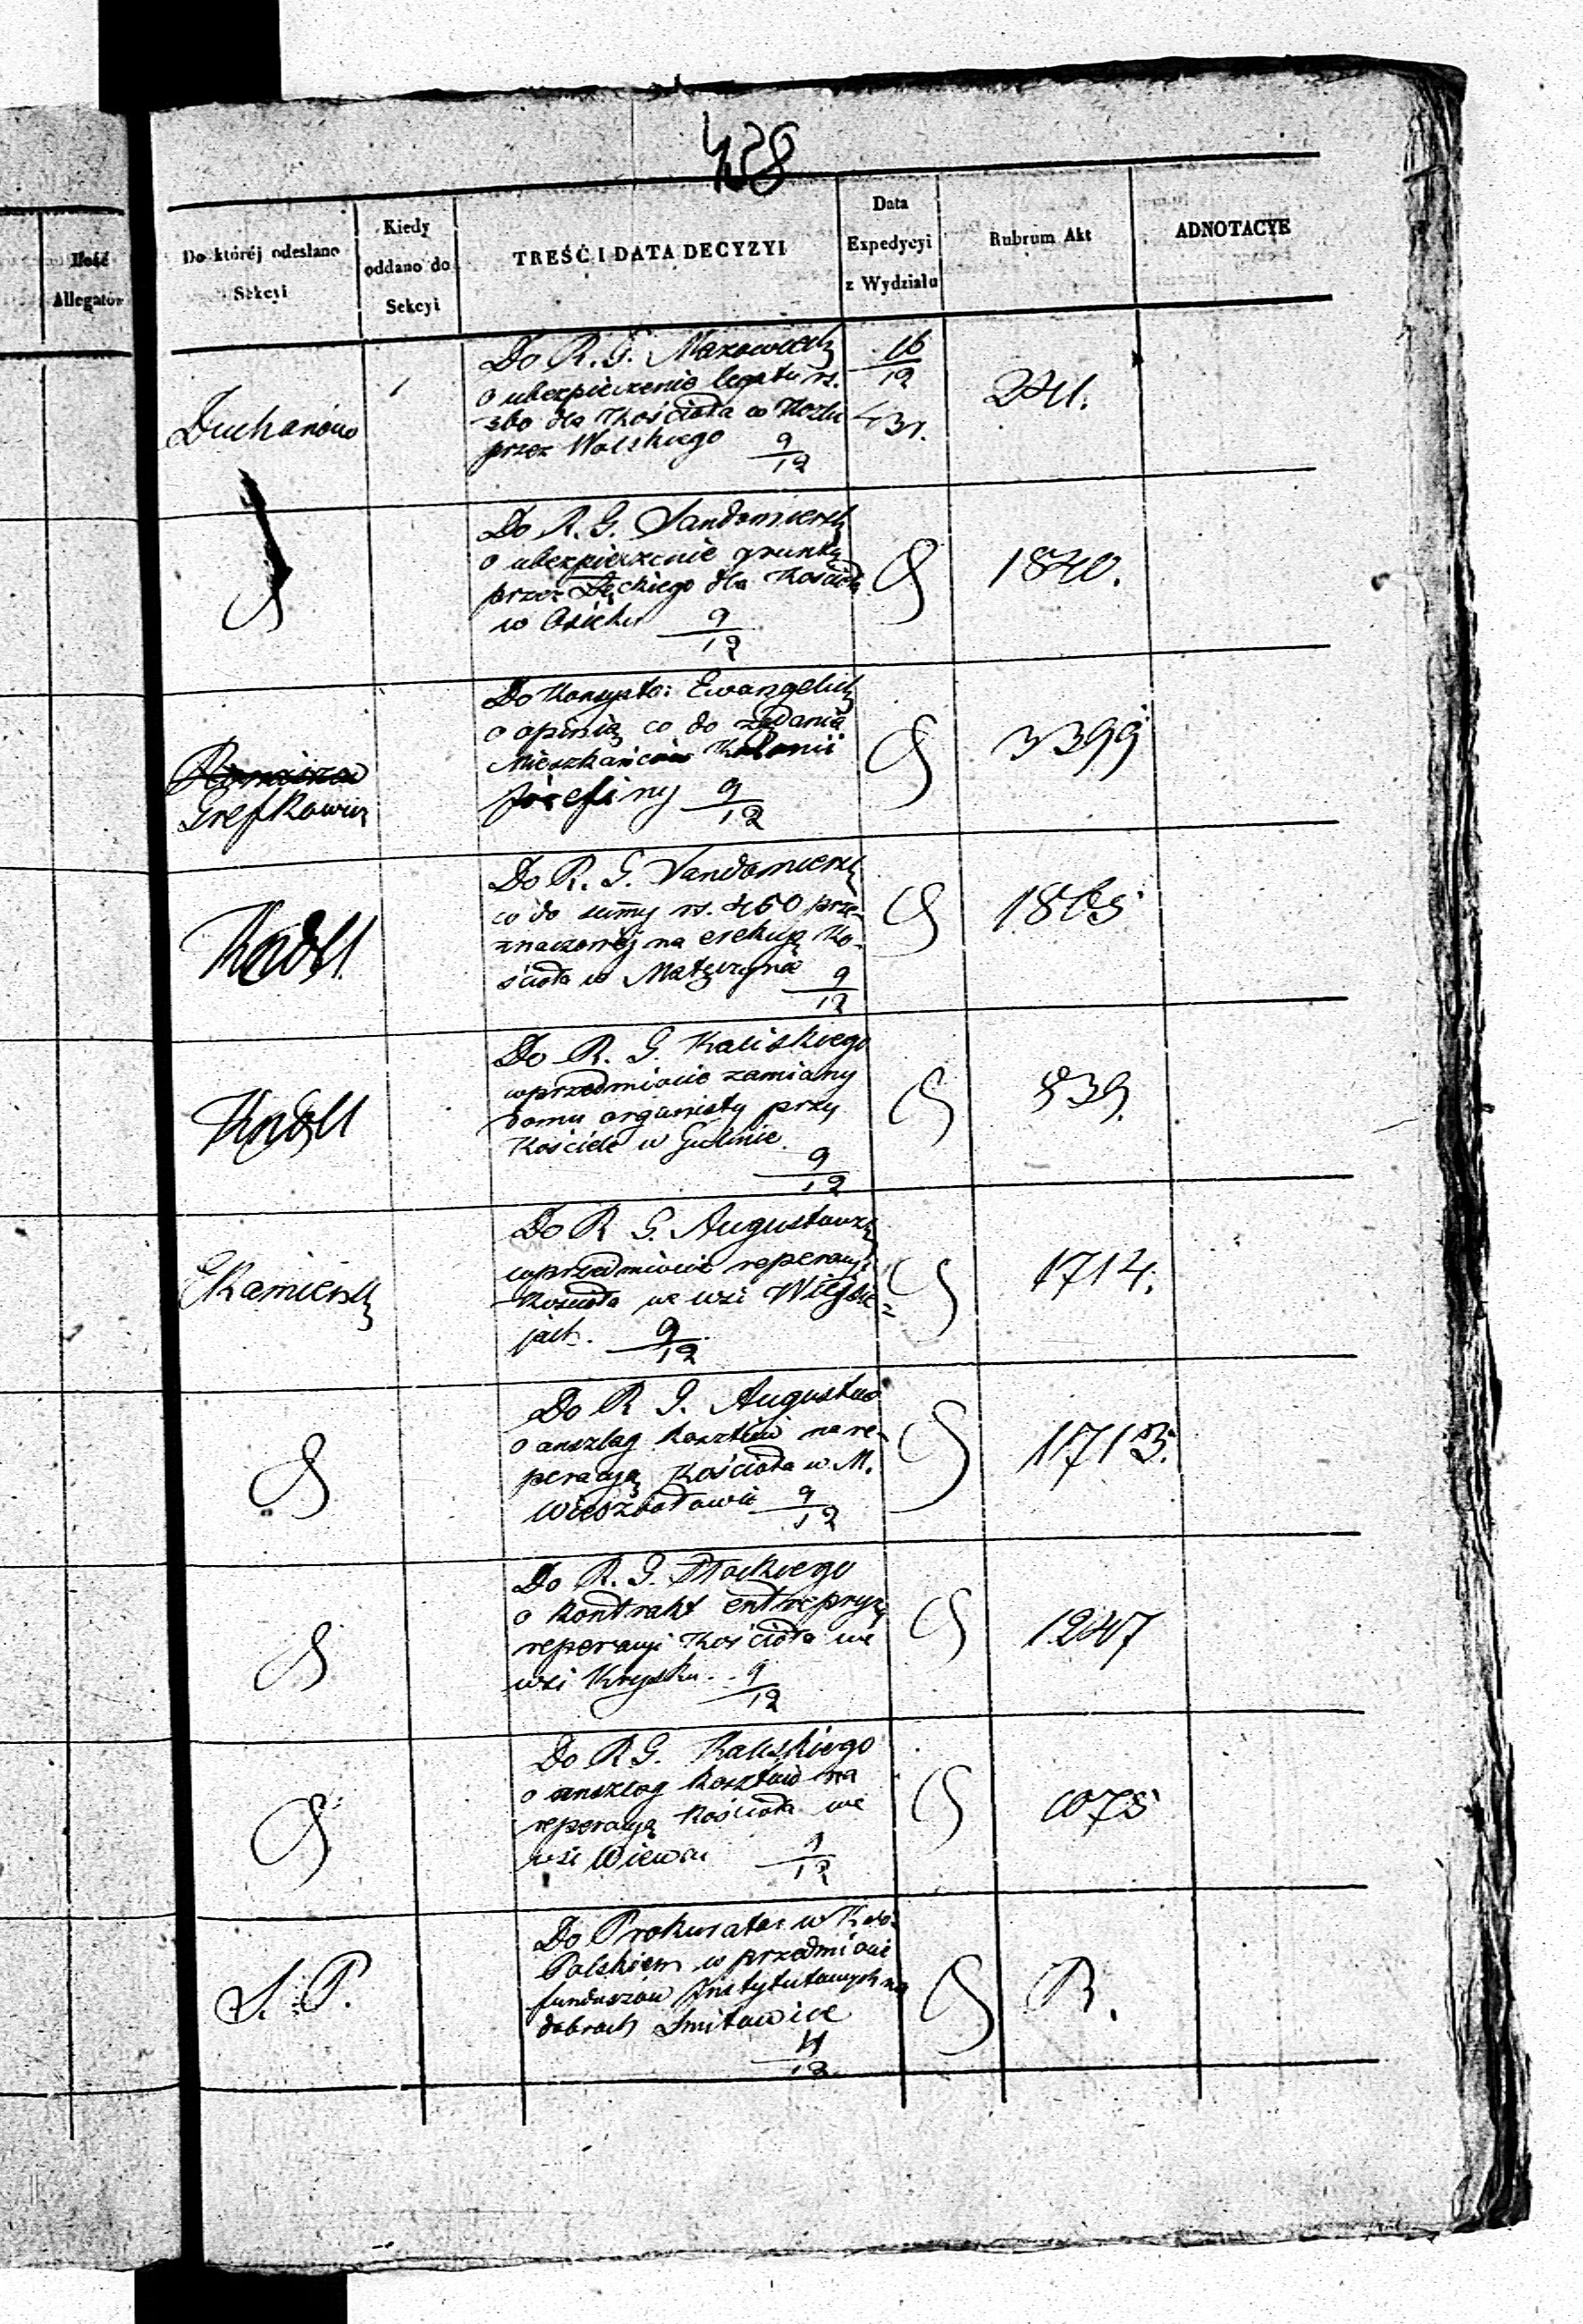 428
Ilość
Allegatów
Do któréj odesłano
Sekcyi
Kiedy
oddano do
Sekcyi
TREŚĆ I DATA DECYZYI
Data
Expedycyi
z Wydziału
Rubrum Akt
ADNOTACYE
Duchanów
Do R. G. Mazowieck
o ubezpieczenie legatu rs.
dla Kościoła w Kozłu
przez Wolskiego 9/12
16/12
431.
241.
Do R. G. Sandomiersk
o ubezpieczenie gruntu
przez Łęckiego dla Kościoła
w Osieku 9/12
1840.
Grefkowicz
Do Konsysto: Ewangelick
o opinią co do żądania
Mieszkańców Kolonii
Józefiny 9/12
3399
Do R. G. Sandomiersk
co do summy rs. 450 prze-
znaczonéj na erekcyą Ko-
ścioła w Matczynie 9/12
1865
Do R. G. Kaliskiego
w przedmiocie zamiany
domu organisty przy
Kościele w Gidlnie
9/12
839.
Kamiensk
Do R G. Augustowsk
w przedmiocie reperacyi
Kościoła we wsi Wiejsie-
jach. 9/12
1714.
Do R G. Augustow
o anszlag kosztów na re-
peracyą Kościoła w M.
Wierzbołowie 9/12
1713.
Do R. G. Płockiego
o kontrakt entrepryzy
reperacyi Kościoła we
wsi Krysku. 9/12
1247
Do R G. Kaliskiego
o anszlag kosztów na
reperacyą Kościoła we
wsi Wiewcu 9/12
1075
S. P.
Do Prokurator w Król.
Polskiem w przedmiocie
funduszów Instytutowych na
dobrach Smiłowice
11/12
R.